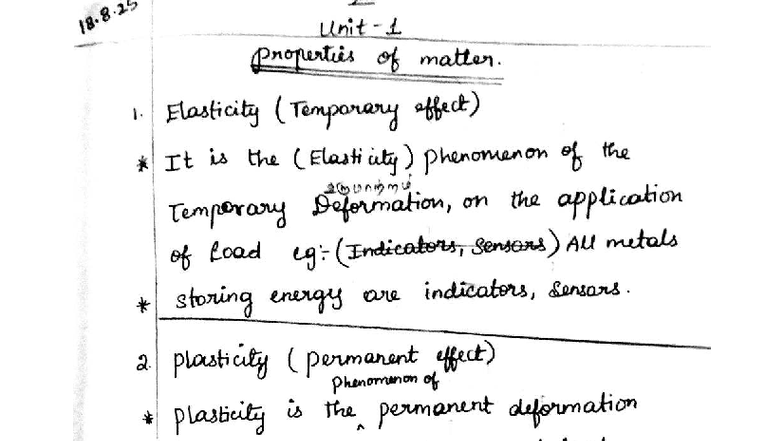 18.8.25
Unit - 1
Properties of matter.
1. Elasticity (Temporary effect)
* It is the (Elasticity) phenomenon of the
உருமாற்றம்
Temporary Deformation, on the application
of load eg:- (Indicators, Sensors) All metals
* storing energy are indicators, Sensors.
2. Plasticity (permanent effect)
phenomenon of
* Plasticity is the ^ permanent deformation